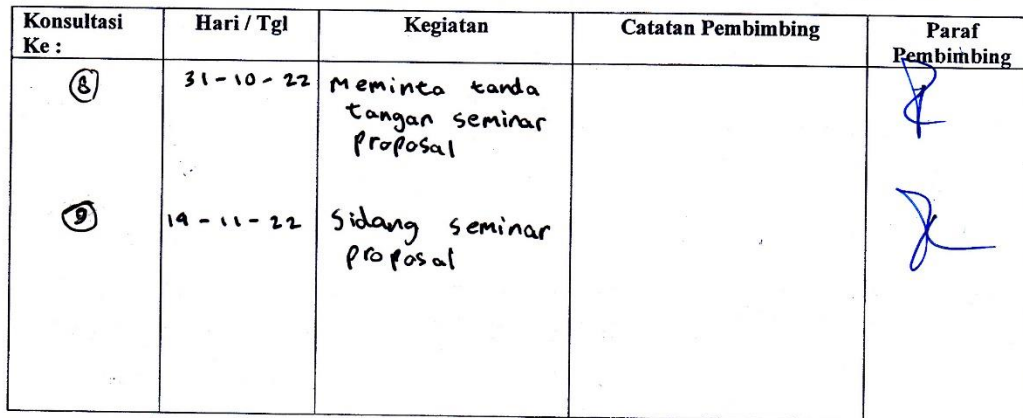 Konsultasi Ke :
Hari / Tgl
Kegiatan
Catatan Pembimbing
Paraf Pembimbing
8
31-10-22
Meminta tanda
tangan seminar
proposal
9
19-11-22
Sidang seminar
proposal